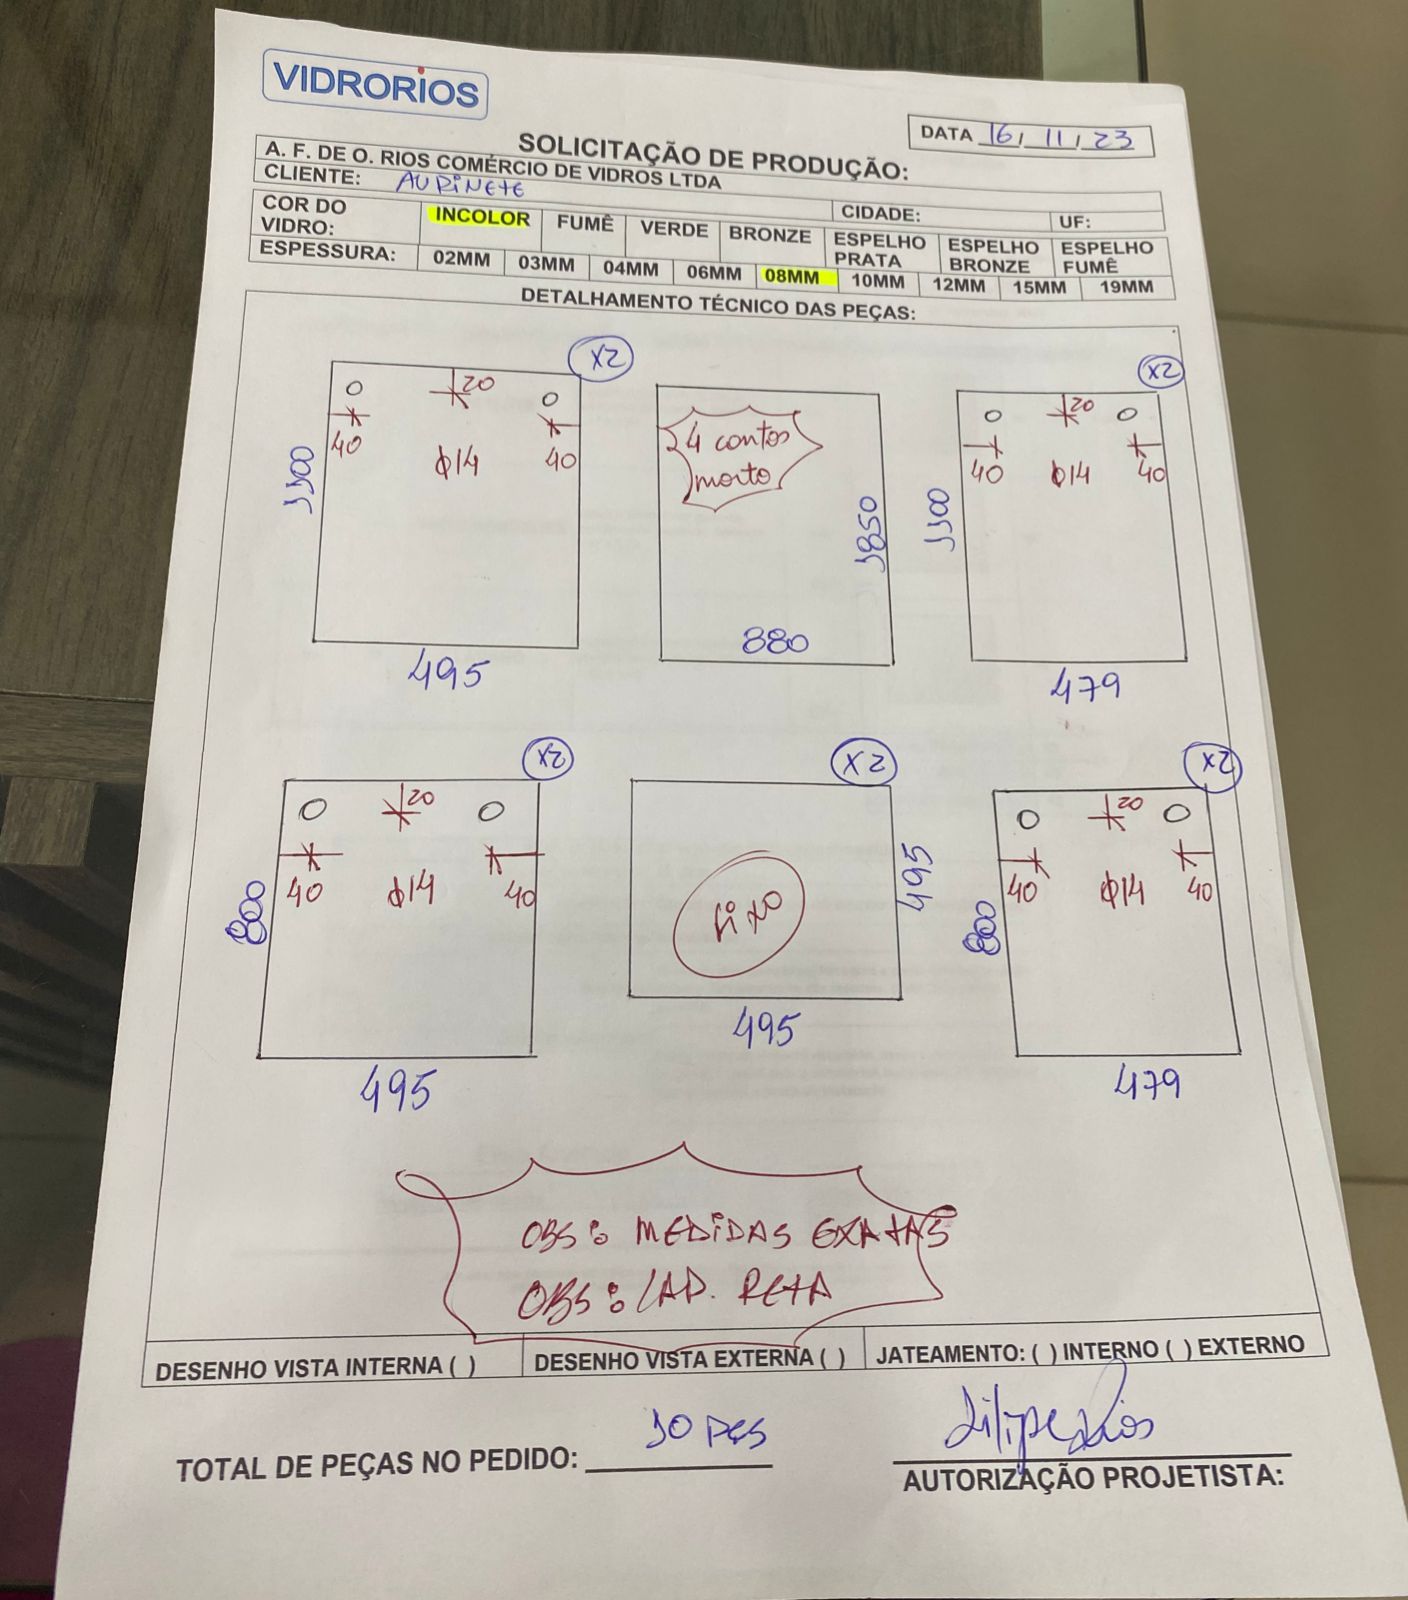 VIDRORIOS
DATA 16/11/23
SOLICITAÇÃO DE PRODUÇÃO:
A. F. DE O. RIOS COMÉRCIO DE VIDROS LTDA
CLIENTE: AURINETE CIDADE: UF:
COR DO VIDRO: INCOLOR FUMÊ VERDE BRONZE ESPELHO PRATA ESPELHO BRONZE ESPELHO FUMÊ
ESPESSURA: 02MM 03MM 04MM 06MM 08MM 10MM 12MM 15MM 19MM
DETALHAMENTO TÉCNICO DAS PEÇAS:
X2
20
40 Φ14 40
1100
495
4 cantos
morto
1850
880
X2
20
40 Φ14 40
1100
479
X2
20
40 Φ14 40
800
495
X2
fixo
495
495
X2
20
40 Φ14 40
800
479
OBS: MEDIDAS EXATAS
OBS: LAP. RETA
DESENHO VISTA INTERNA ( ) DESENHO VISTA EXTERNA ( ) JATEAMENTO: ( ) INTERNO ( ) EXTERNO
TOTAL DE PEÇAS NO PEDIDO: 10 PÇS
Filipe Rios
AUTORIZAÇÃO PROJETISTA: